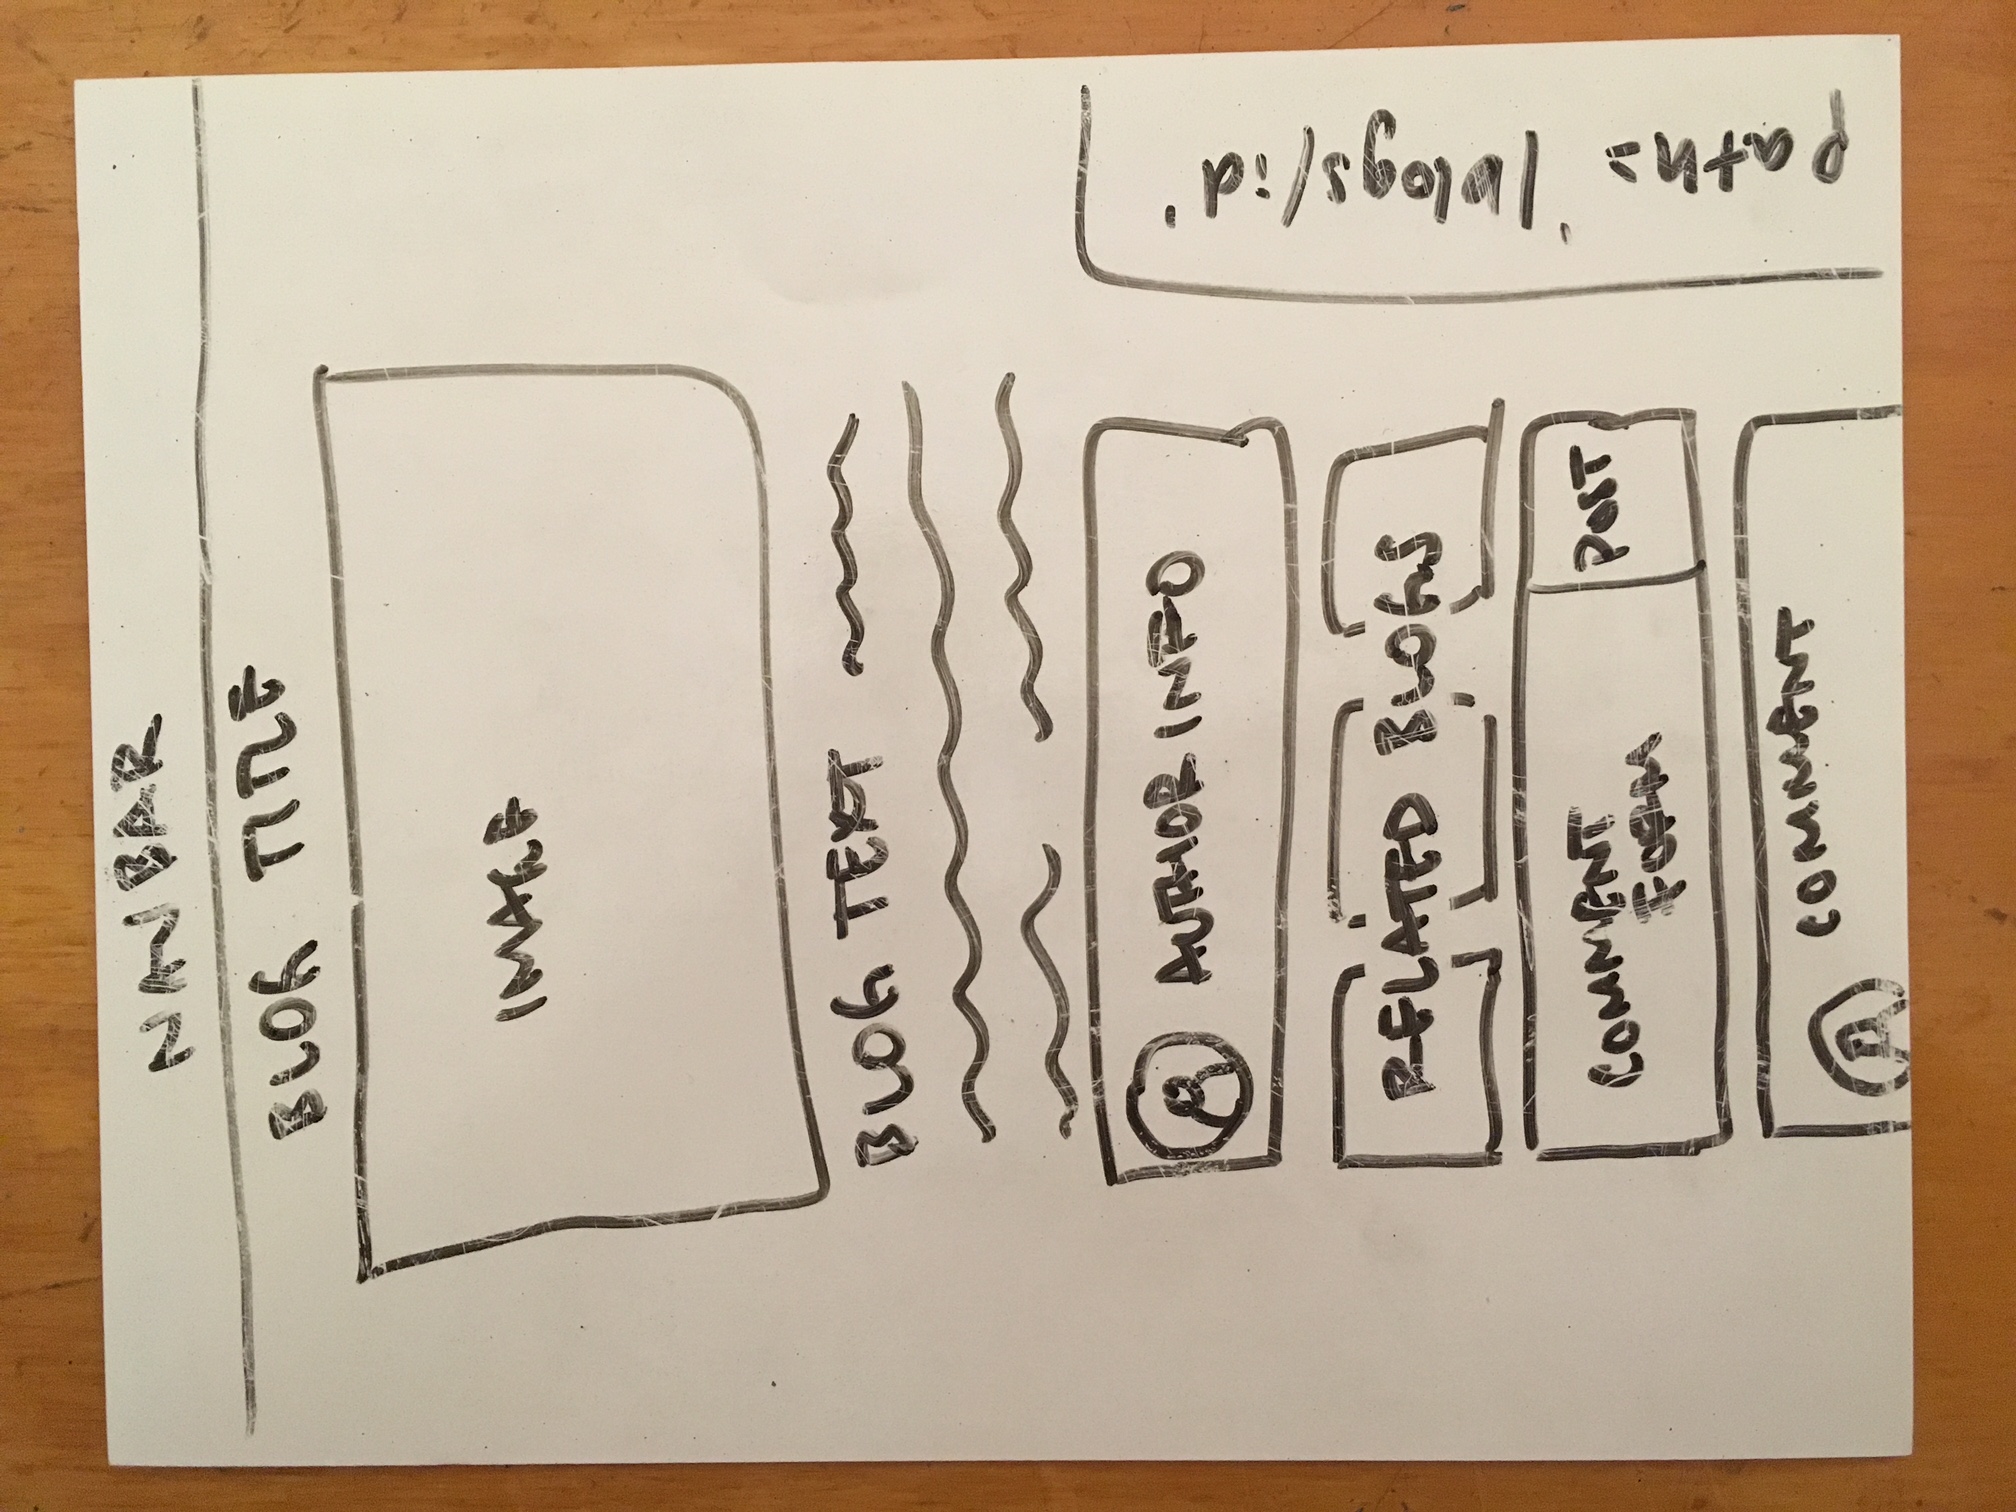 NAVBAR
BLOG TITLE
IMAGE
BLOG TEXT
AUTHOR INFO
RELATED BLOGS
COMMENT
FORM
POST
COMMENT
path= '/blogs/:id'